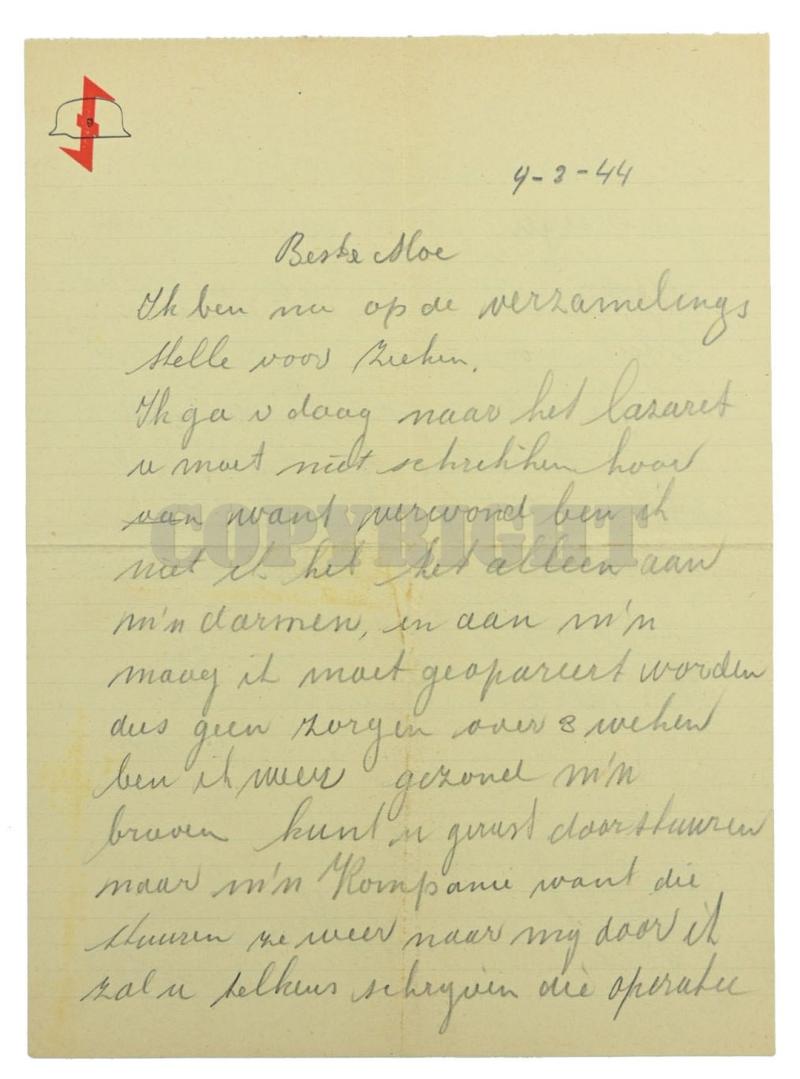 4-3-44
Beste Moe
Ik ben nu op de verzamelings
stelle voor zieken.
Ik ga v daag naar het lazaret
u moet niet schrikken hoor
van want verwond ben ik
COPYRIGHT
niet ik het het alleen aan
m'n darmen, en aan m'n
maag ik moet geopareert worden
dus geen zorgen over 3 weken
ben ik weer gezond m'n
braven kunt u gerust doorstuuren
naar m'n Kompanie want die
stuuren ze weer naar my door ik
zal u telkens schryven die operatie